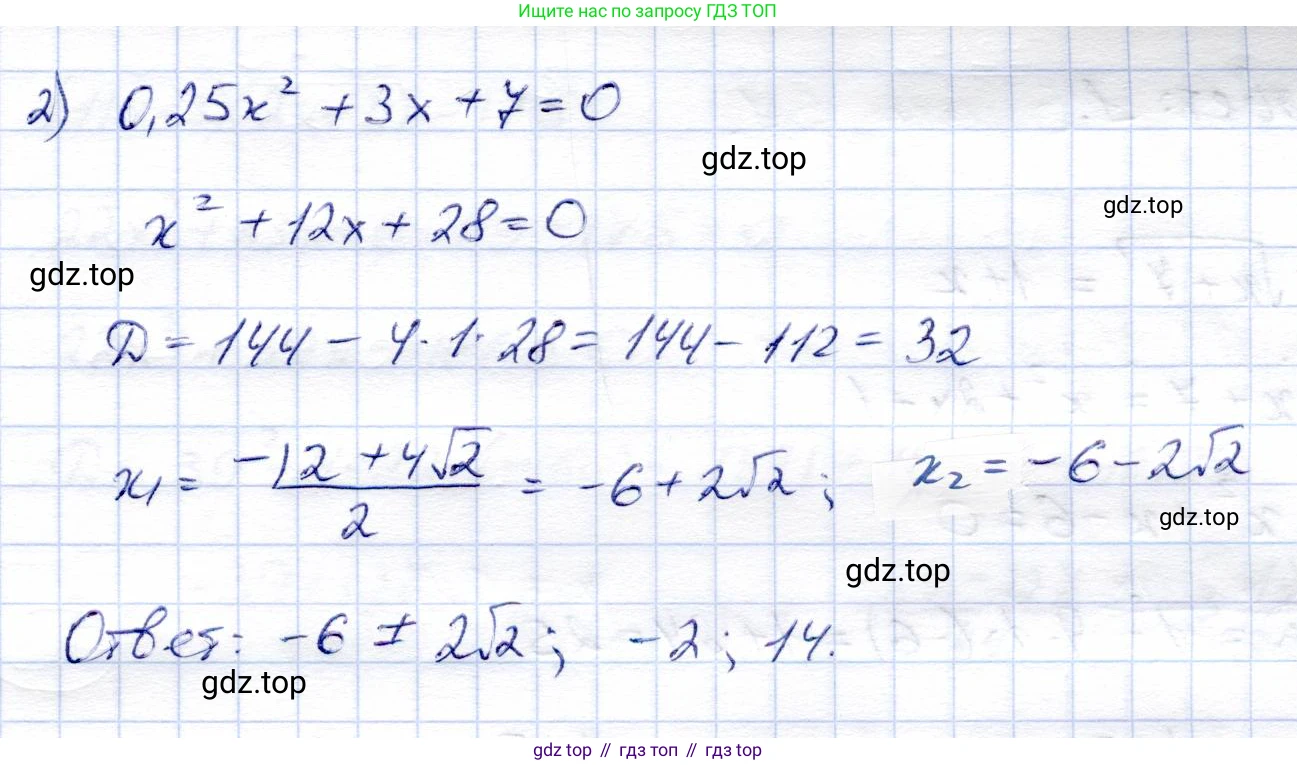 Ищите нас по запросу ГДЗ ТОП
2) 0,25x² + 3x + 7 = 0
gdz.top
x² + 12x + 28 = 0
gdz.top
gdz.top
D = 144 - 4·1·28 = 144 - 112 = 32
x₁ = (-12 + 4√2)/2 = -6 + 2√2; x₂ = -6 - 2√2
gdz.top
gdz.top
Ответ: -6 ± 2√2; -2; 14.
gdz.top
gdz top // гдз топ // гдз top